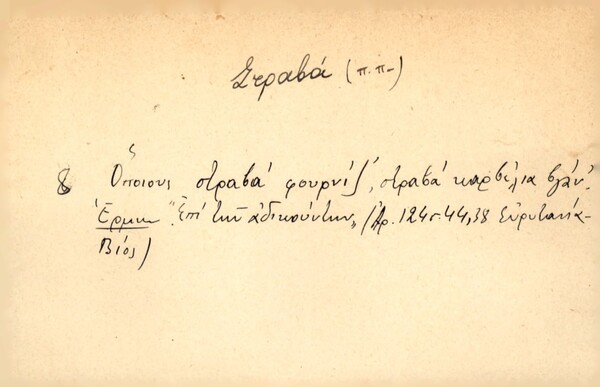 Στραβά (π.π.)
8 Ὅποιους στραβά φουρνίζ', στραβά καρβέλια βγάν'.
Ἑρμην. "Ἐπί τῶν ἀδικούντων" (Ἀρ. 124 σ. 44, 38 Εὐρυτανία-
Βίος)